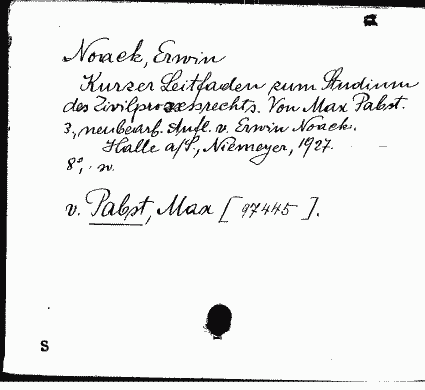 Noack, Erwin
Kurzer Leitfaden zum Studium
des Zivilprozessrechts. Von Max Pabst.
3., neubearb. Aufl. v. Erwin Noack.
Halle a/S., Niemeyer, 1927.
8°,
v. Pabst, Max [97445].
S